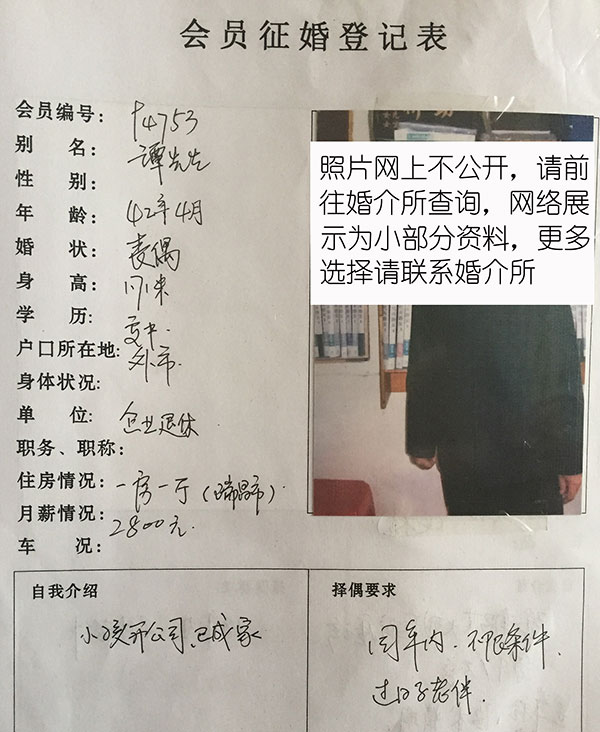 会员征婚登记表
会员编号: 14753
别 名: 谭先生
性 别:
年 龄: 42年4月
婚 状: 丧偶
身 高: 1.71米
学 历: 高中.
户口所在地: 外市.
身体状况:
单 位: 企业退休
职务、职称:
住房情况: 一房一厅(瑞昌市).
月薪情况: 2800元.
车 况:
照片网上不公开，请前
往婚介所查询，网络展
示为小部分资料，更多
选择请联系婚介所
自我介绍
小孩开公司、已成家
择偶要求
同年内.不限条件.
过日子老伴.